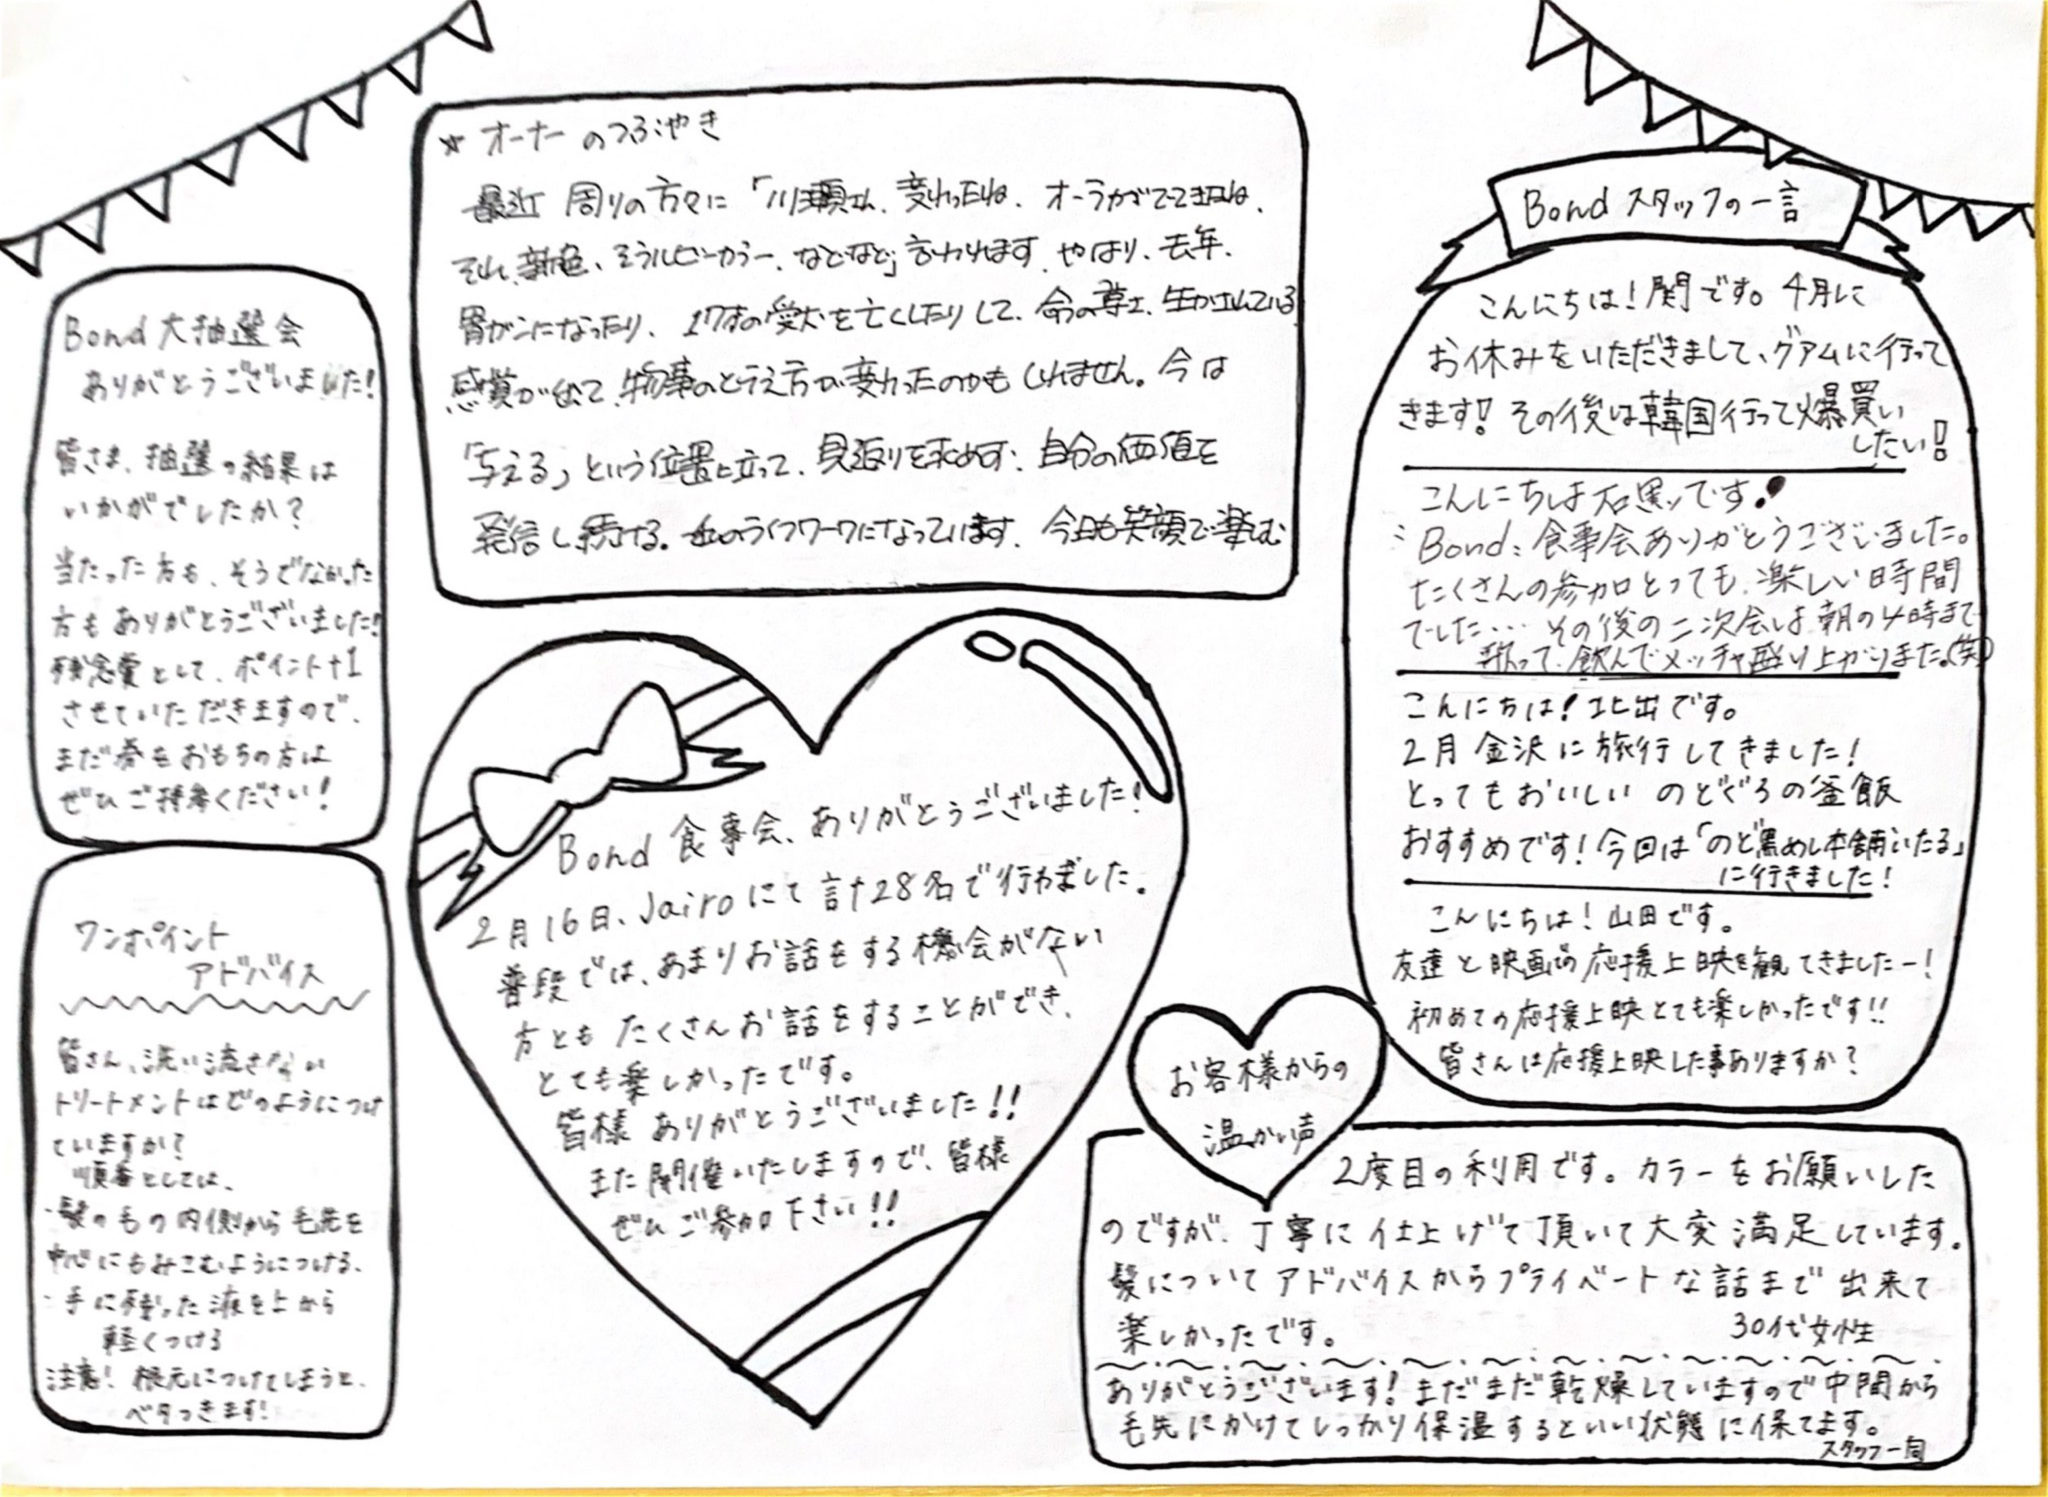 ☆ オーナーのつぶやき
最近 周りの方々に「川瀬さん、変わったね、オーラがでてきたね、
それ、新色、そうルビーカラー、などなど」言われます、やはり、去年、
胃がんになったり、17才の愛犬を亡くしたりして、命の尊さ、生かされている
感覚が出て、物事のとらえ方が変わったのかもしれません。今は
「与える」という位置に立って、見返りを求めず、自分の価値を
発信し続ける。私のライフワークになっています、今日も笑顔で楽しむ
Bond 大抽選会
ありがとうございました!
皆さま、抽選の結果は
いかがでしたか?
当たった方も、そうでなかった
方もありがとうございました!
残念賞として、ポイント+1
させていただきますので、
まだ券をおもちの方は
ぜひご持参ください!
ワンポイント
アドバイス
皆さん、洗い流さない
トリートメントはどのようにつけ
ていますか?
順番としては、
・髪のもの内側から毛先を
中心にもみこむようにつける、
・手に残った液を上から
軽くつける
注意! 根元につけてしまうと、
ベタつきます!
Bond 食事会、ありがとうございました!
2月16日、Jairoにて計28名で行われました。
普段では、あまりお話をする機会がない
方とも たくさんお話をすることができ、
とても楽しかったです。
皆様 ありがとうございました!!
また開催いたしますので、皆様
ぜひ ご参加下さい!!
Bond スタッフの一言
こんにちは! 関です。4月に
お休みをいただきまして、グアムに行って
きます! その後は韓国行って爆買い
したい!
こんにちは石黒ッです!
Bond:食事会ありがとうございました。
たくさんの参加とっても、楽しい時間
でした… その後の二次会は朝の4時まで
歌って、飲んでメッチャ盛り上がりました。(笑)
こんにちは! 北出です。
2月 金沢に旅行してきました!
とってもおいしい のどぐろの釜飯
おすすめです! 今回は「のど黒めし本舗いたる」
に行きました!
こんにちは! 山田です。
友達と映画の応援上映を観てきましたー!
初めての応援上映とても楽しかったです!!
皆さんは応援上映した事ありますか?
お客様からの
温かい声
2度目の利用です。カラーをお願いした
のですが、丁寧に仕上げて頂いて大変満足しています。
髪についてアドバイスからプライベートな話まで出来て
楽しかったです。 30代女性
ありがとうございます! まだまだ乾燥していますので中間から
毛先にかけてしっかり保湿するといい状態に保てます。
スタッフ一同